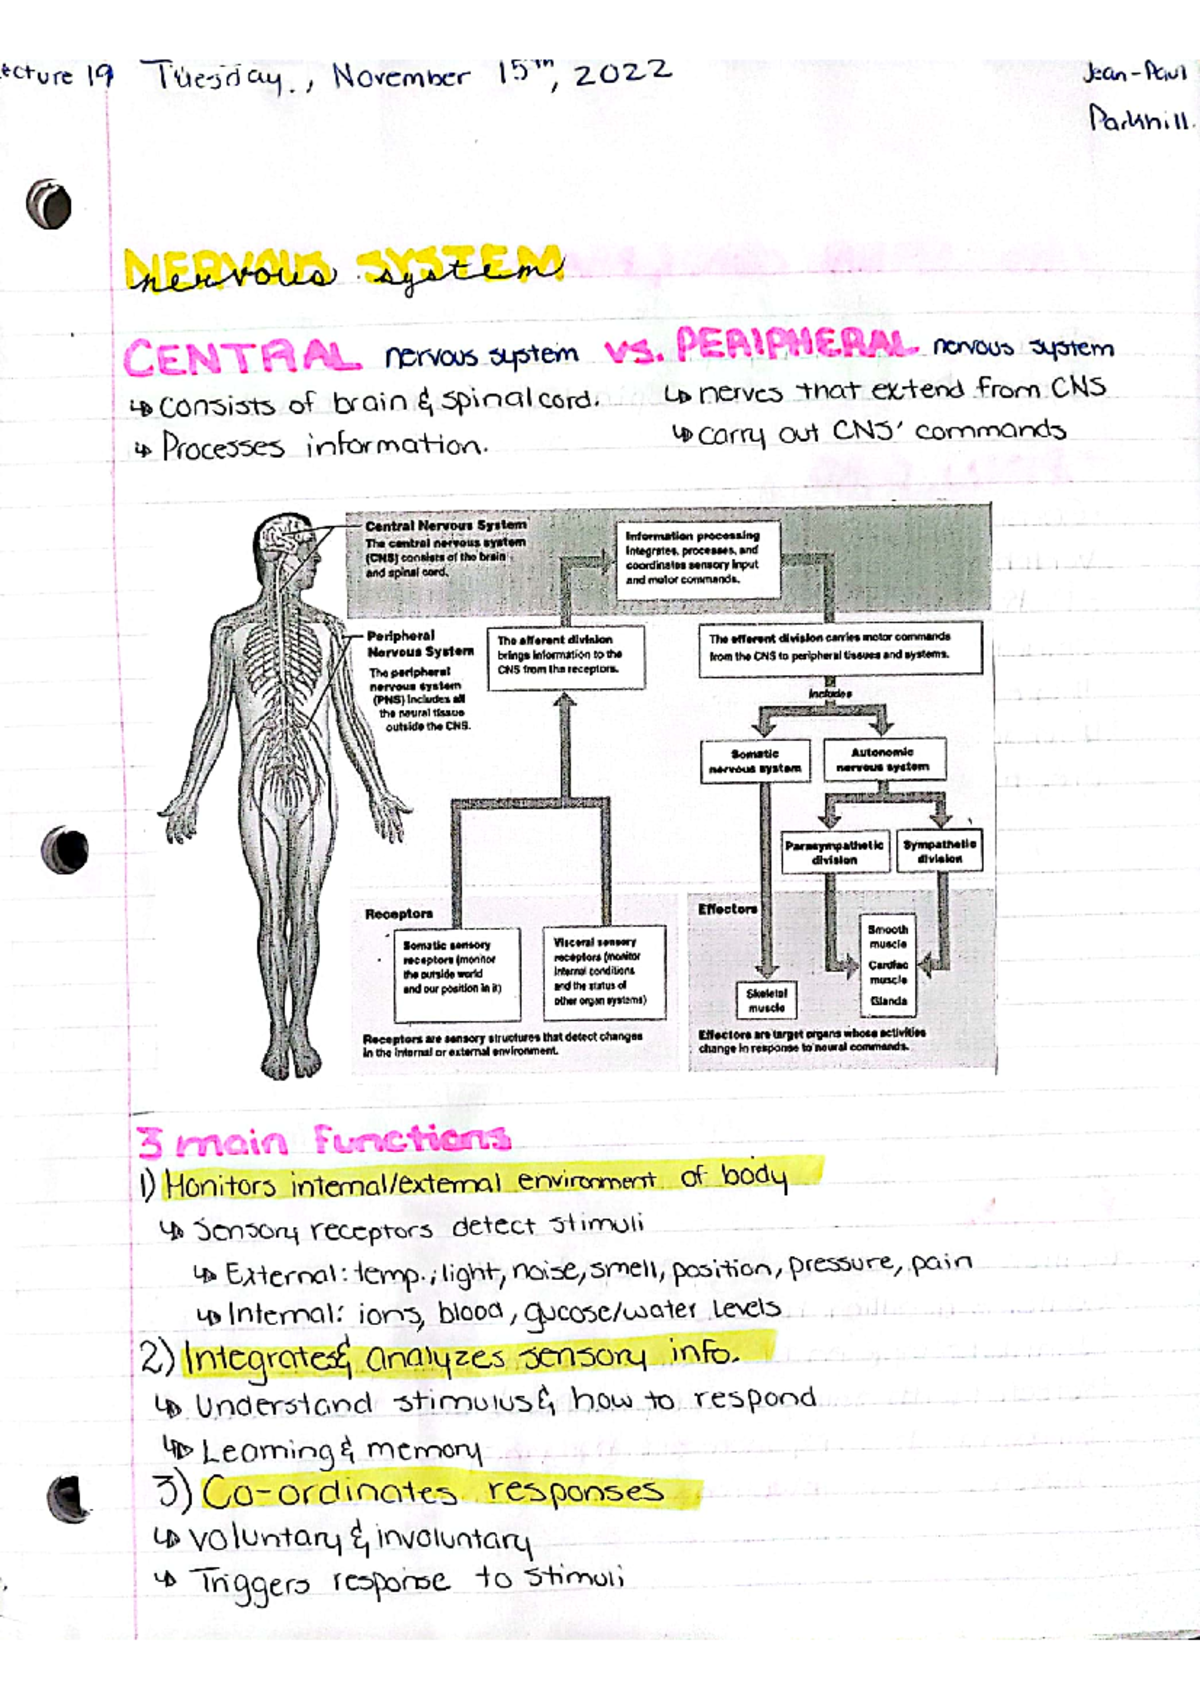 ecture 19 Tuesday., November 15th, 2022
Jean-Paul
Parkhill.
NERVOUS SYSTEM
nervous system
CENTRAL nervous system vs. PERIPHERAL nervous system
↳ consists of brain & spinal cord.
↳ nerves that extend from CNS
↳ Processes information.
↳ carry out CNS' commands
Central Nervous System
The central nervous system
(CNS) consists of the brain
and spinal cord.
Information processing
integrates, processes, and
coordinates sensory input
and motor commands.
Peripheral
Nervous System
The peripheral
nervous system
(PNS) includes all
the neural tissue
outside the CNS.
The afferent division
brings information to the
CNS from the receptors.
The efferent division carries motor commands
from the CNS to peripheral tissues and systems.
includes
Somatic
nervous system
Autonomic
nervous system
Parasympathetic
division
Sympathetic
division
Receptors
Somatic sensory
receptors (monitor
the outside world
and our position in it)
Visceral sensory
receptors (monitor
internal conditions
and the status of
other organ systems)
Receptors are sensory structures that detect changes
in the internal or external environment.
Effectors
Skeletal
muscle
Smooth
muscle
Cardiac
muscle
Glands
Effectors are target organs whose activities
change in response to neural commands.
3 main functions
1) Monitors internal/external environment of body
↳ Sensory receptors detect stimuli
↳ External: temp., light, noise, smell, position, pressure, pain
↳ Internal: ions, blood, gucose/water levels
2) Integrates & analyzes sensory info.
↳ Understand stimulus & how to respond
↳ Learning & memory
3) Co-ordinates responses
↳ voluntary & involuntary
↳ Triggers response to stimuli